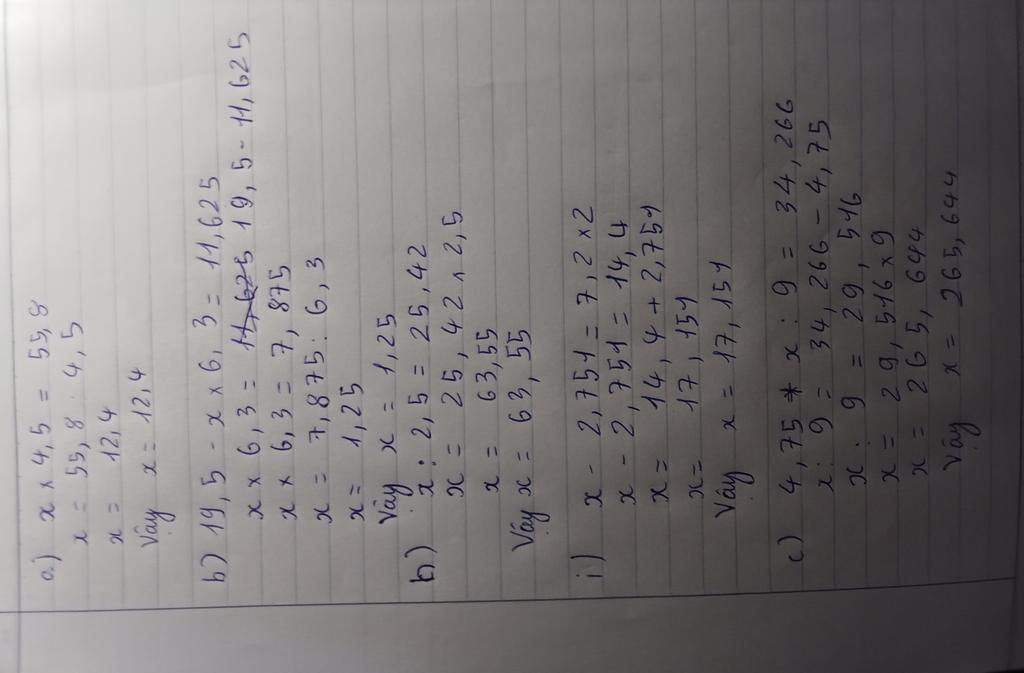 a) x × 4,5 = 55,8
x = 55,8 : 4,5
x = 12,4
Vậy x = 12,4
b) 19,5 - x × 6,3 = 11,625
x × 6,3 = 11,625 19,5 - 11,625
x × 6,3 = 7,875
x = 7,875 : 6,3
x = 1,25
Vậy x = 1,25
h) x : 2,5 = 25,42
x = 25,42 × 2,5
x = 63,55
Vậy x = 63,55
i) x - 2,751 = 7,2 × 2
x - 2,751 = 14,4
x = 14,4 + 2,751
x = 17,151
Vậy x = 17,151
c) 4,75 * x : 9 = 34,266
x : 9 = 34,266 - 4,75
x : 9 = 29,516
x = 29,516 × 9
x = 265,644
Vậy x = 265,644